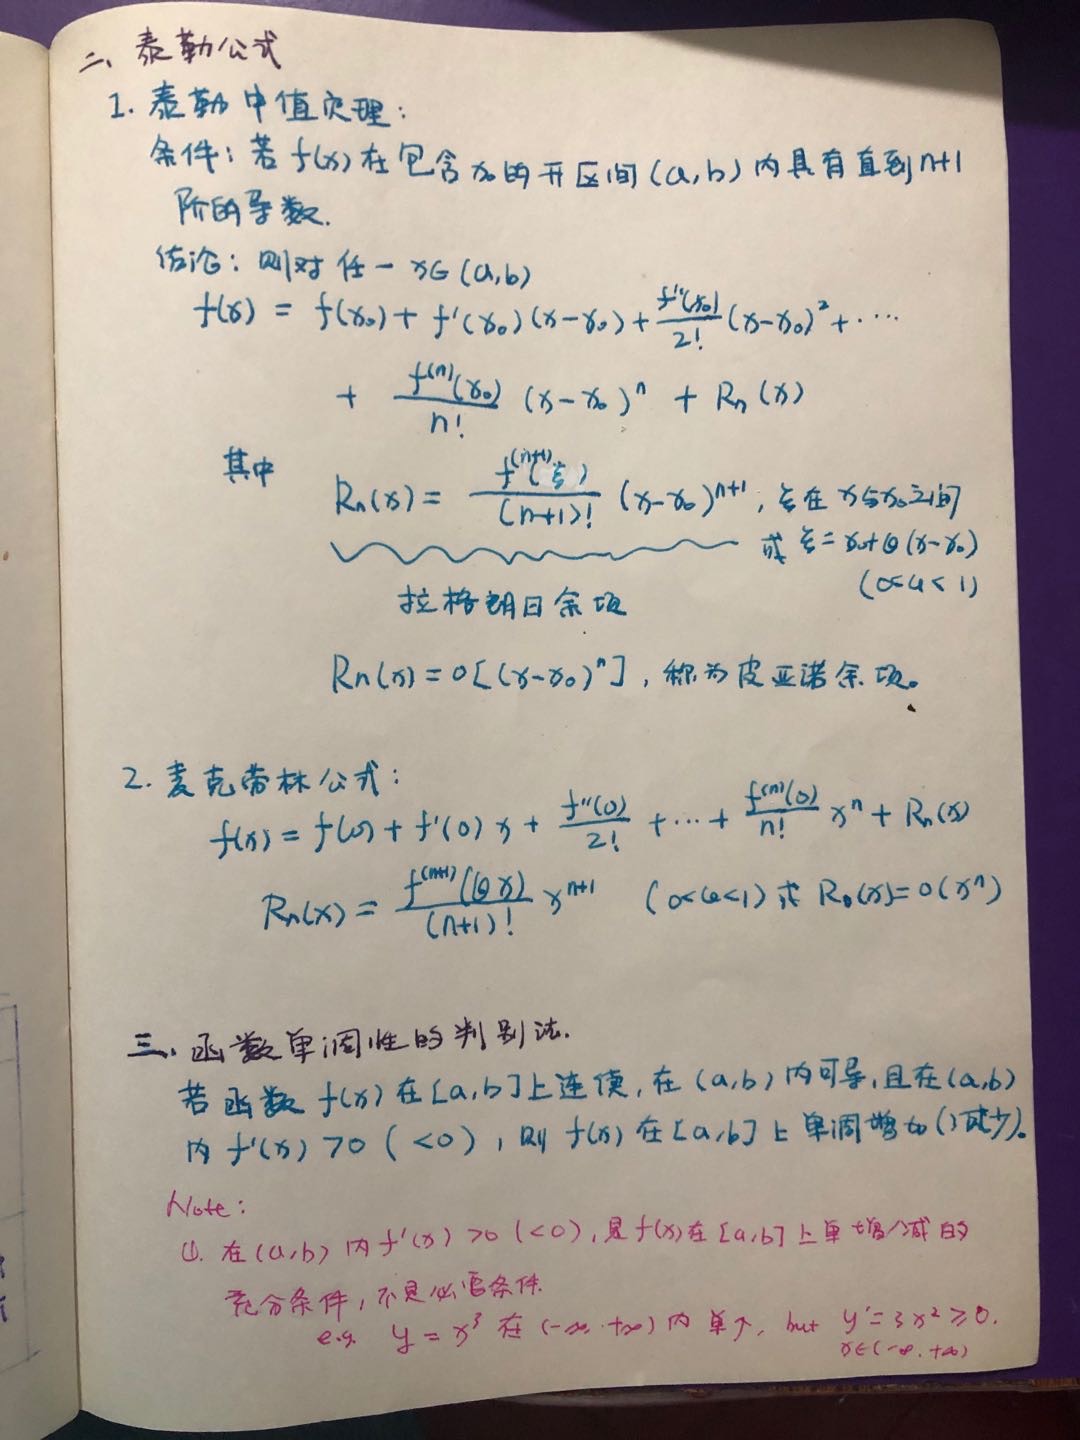 二、泰勒公式
1. 泰勒中值定理:
条件: 若 f(x) 在包含 x₀ 的开区间 (a,b) 内具有直到 n+1
阶的导数.
结论: 则对任一 x∈(a,b)
f(x) = f(x₀) + f'(x₀)(x-x₀) + f''(x₀)/2! (x-x₀)² + ····
+ f⁽ⁿ⁾(x₀)/n! (x-x₀)ⁿ + Rn(x)
其中 Rn(x) = f⁽ⁿ⁺¹⁾(ξ)/(n+1)! (x-x₀)ⁿ⁺¹, ξ在 x与x₀之间
或 ξ = x₀+θ(x-x₀)
(0<θ<1)
拉格朗日余项
Rn(x) = o[(x-x₀)ⁿ], 称为皮亚诺余项。
2. 麦克劳林公式:
f(x) = f(0) + f'(0)x + f''(0)/2! + ··· + f⁽ⁿ⁾(0)/n! xⁿ + Rn(x)
Rn(x) = f⁽ⁿ⁺¹⁾(θx)/(n+1)! xⁿ⁺¹ (0<θ<1) 或 Rn(x)=o(xⁿ)
三、函数单调性的判别法.
若函数 f(x) 在 [a,b] 上连续, 在 (a,b) 内可导, 且在 (a,b)
内 f'(x) >0 ( <0 ), 则 f(x) 在 [a,b] 上单调增加(减少)。
Note:
①. 在 (a,b) 内 f'(x) >0 (<0), 是 f(x) 在 [a,b] 上单增/减的
充分条件, 不是必需条件.
e.g. y = x³ 在 (-∞, +∞) 内单个, but y' = 3x² ≥0.
x∈(-∞, +∞)